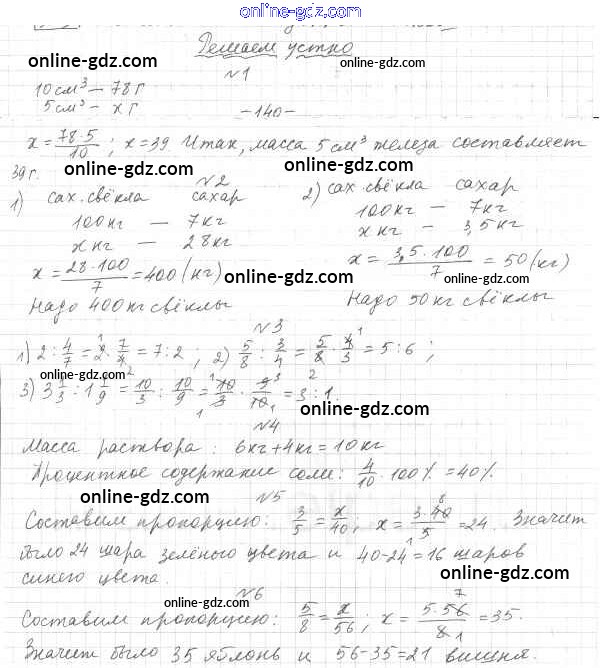 online-gdz.com
Решаем устно
№1
10 см³ — 78 г
5 см³ — х г
online-gdz.com
online-gdz.com
-140-
x = 78·5/10 ; x = 39 Итак, масса 5 см³ железа составляет
39 г.
online-gdz.com
online-gdz.com
№2
1) сах. свёкла сахар
100 кг — 7 кг
х кг — 28 кг
x = 28·100/7 = 400 (кг)
Надо 400 кг свёклы
2) сах. свёкла сахар
100 кг — 7 кг
х кг — 3,5 кг
x = 3,5·100/7 = 50 (кг)
Надо 50 кг свёклы
online-gdz.com
online-gdz.com
№3
1) 2 : 4/7 = 2 · 7/4 = 7 : 2 ; 2) 5/8 : 3/4 = 5/8 · 4/3 = 5 : 6 ;
online-gdz.com
3) 3 1/3 : 1 1/9 = 10/3 : 10/9 = 10/3 · 9/10 = 3 : 1.
online-gdz.com
№4
Масса раствора : 6 кг + 4 кг = 10 кг
online-gdz.com
Процентное содержание соли: 4/10 · 100% = 40%
online-gdz.com
№5
Составим пропорцию: 3/5 = x/40 ; x = 3·40/5 = 24. Значит
было 24 шара зелёного цвета и 40-24 = 16 шаров
синего цвета.
online-gdz.com
online-gdz.com
№6
Составим пропорцию: 5/8 = x/56 ; x = 5·56/8 = 35.
Значит было 35 яблонь и 56-35 = 21 вишня.
online-gdz.com
online-gdz.com